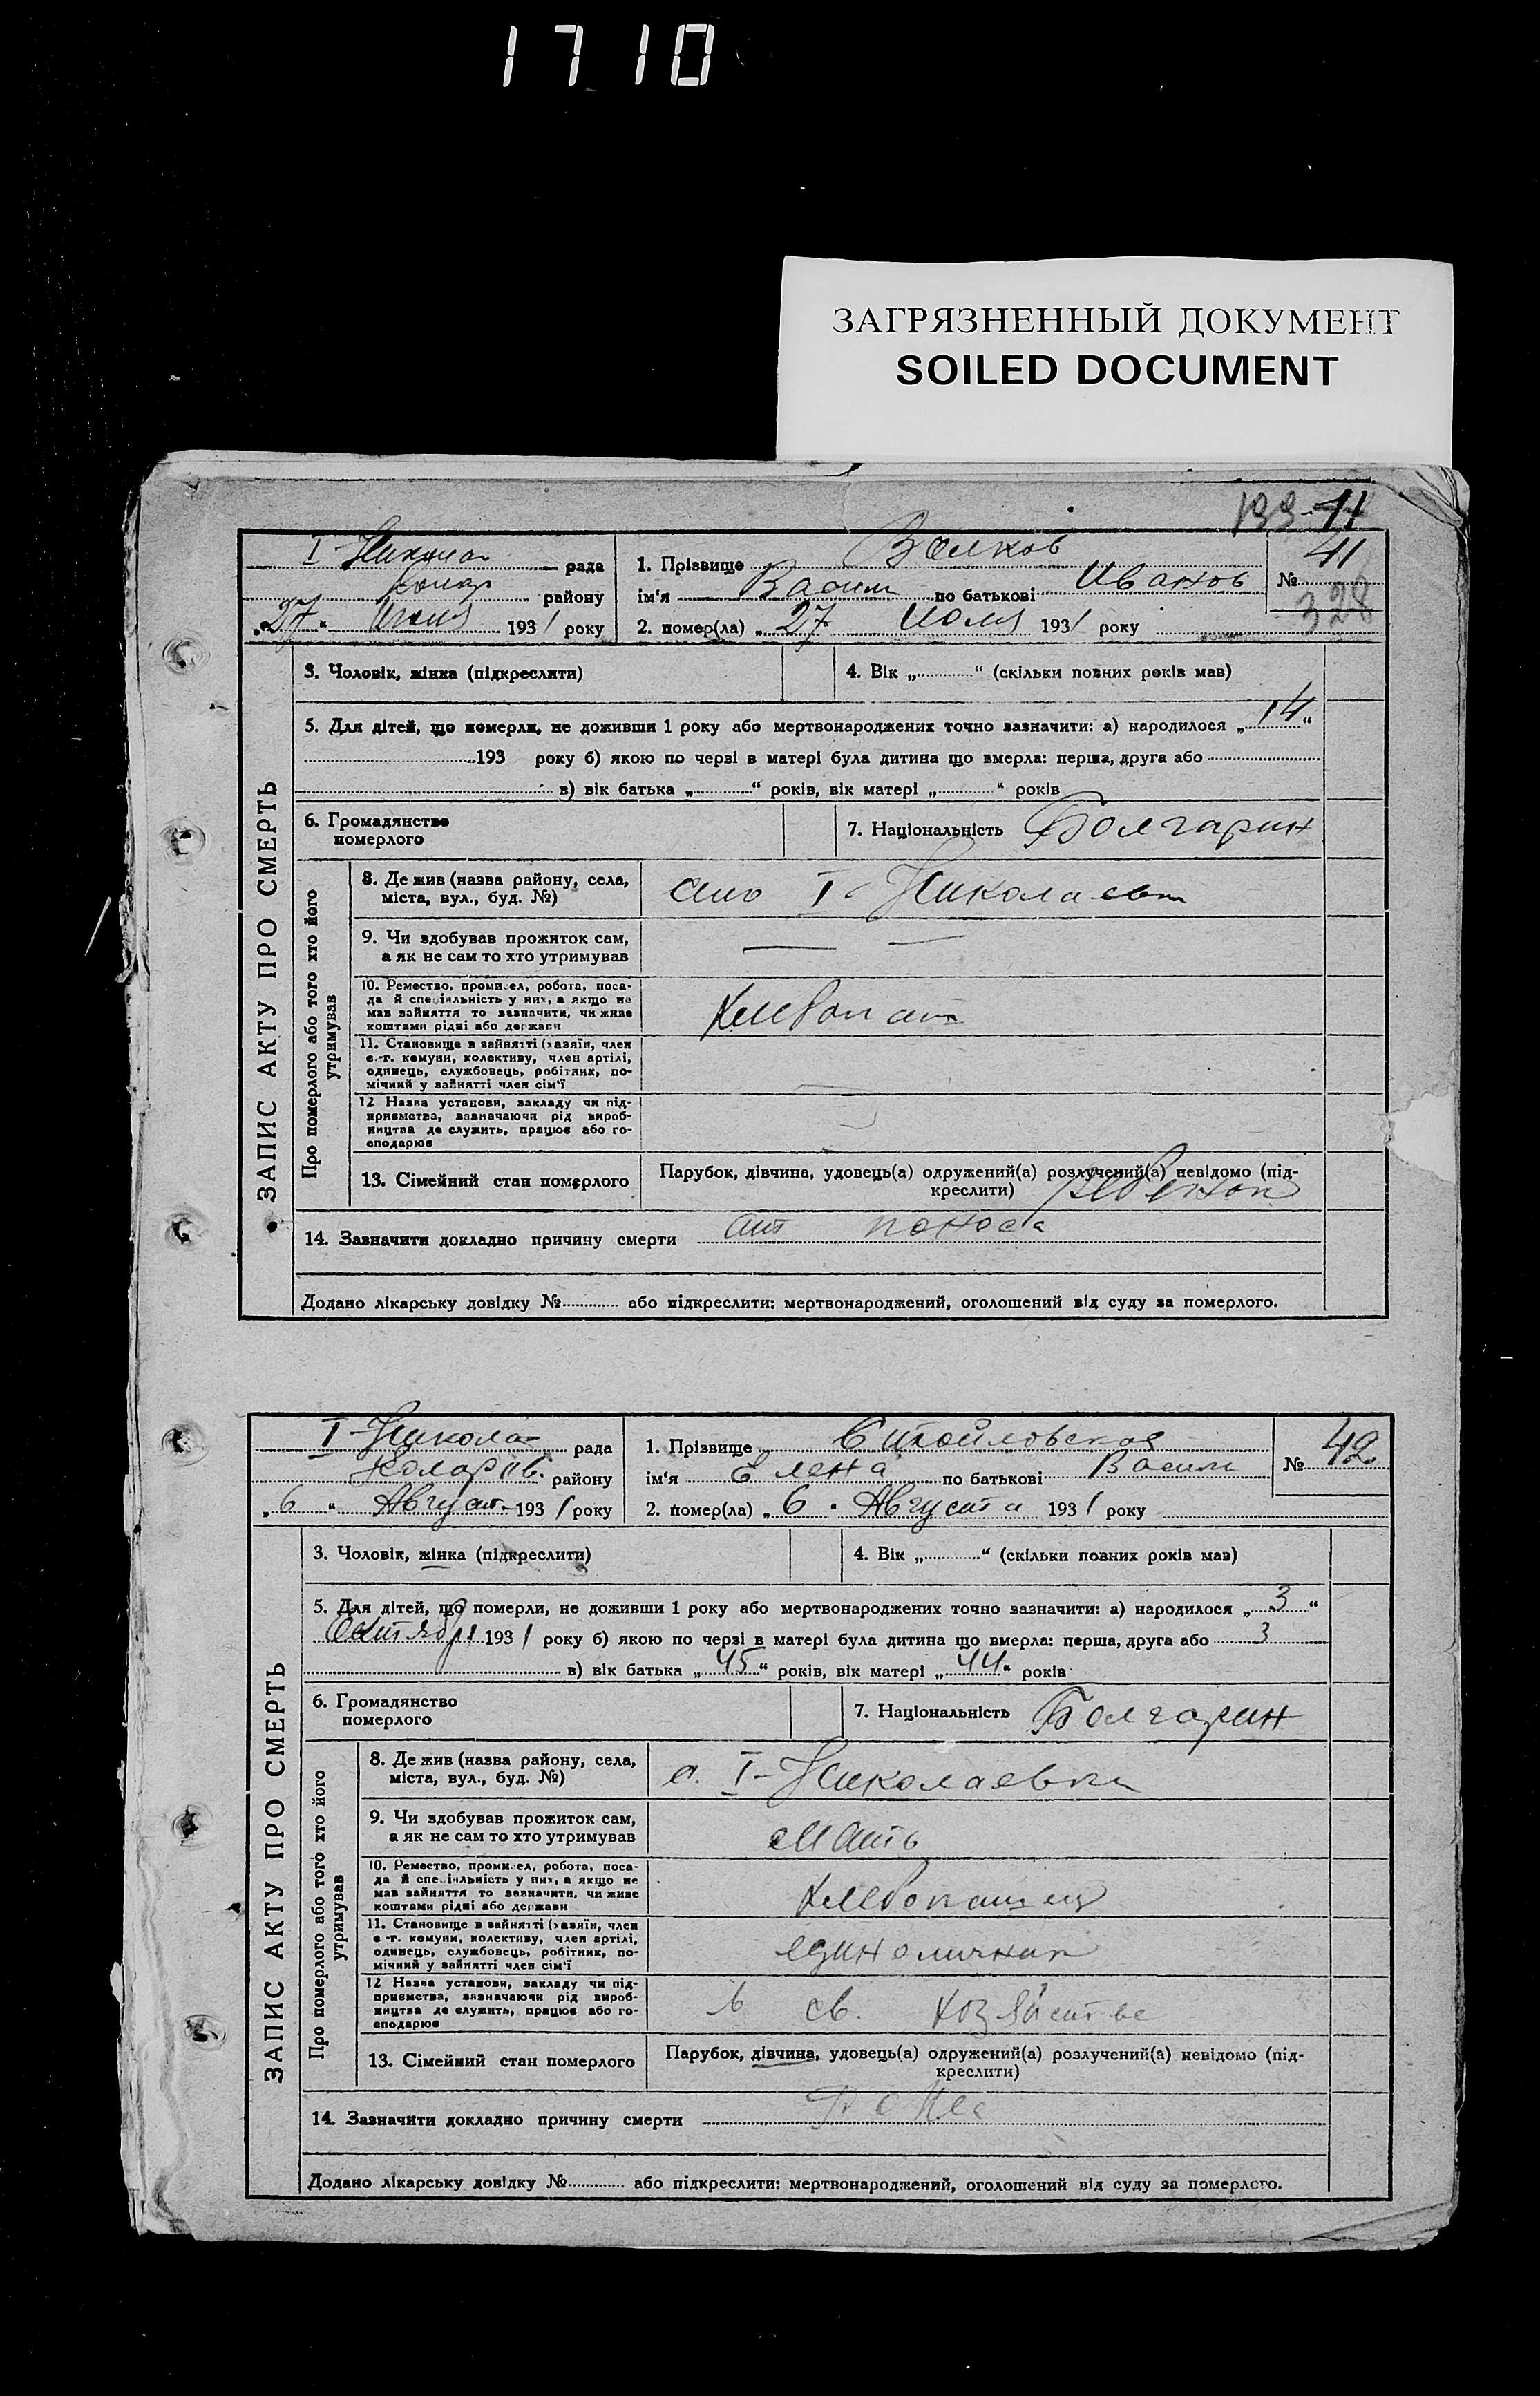 1710
ЗАГРЯЗНЕННЫЙ ДОКУМЕНТ
SOILED DOCUMENT
193-41
I-Никола- рада
Колар району
„27“ Июля 1931 року
1. Прізвище Волков
ім'я Васил по батькові Иванов
2. помер(ла) „27 Июля 1931 року
№ 41
328
ЗАПИС АКТУ ПРО СМЕРТЬ
3. Чоловік, жінка (підкреслити)
4. Вік „ “ (скільки повних років мав)
5. Для дітей, що померли, не доживши 1 року або мертвонароджених точно зазначити: а) народилося „14“
193 року б) якою по черзі в матері була дитина що вмерла: перша, друга або
в) вік батька „ “ років, вік матері „ “ років
6. Громадянство
померлого
7. Національність Болгарин
Про померлого або того хто його
утримував
8. Де жив (назва району, села,
міста, вул., буд. №)
село I-Николаевк
9. Чи здобував прожиток сам,
а як не сам то хто утримував
— —
10. Ремество, промисел, робота, поса-
да й спеціяльність у них, а якщо не
мав зайняття то зазначити, чи живе
коштами рідні або держави
Хлебопаш
11. Становище в зайнятті (хазяїн, член
с.-г. комуни, колективу, член артілі,
одинець, службовець, робітник, по-
мічний у зайнятті член сім'ї
12 Назва установи, закладу чи під-
приємства, зазначаючи рід вироб-
ництва де служить, працює або го-
сподарює
13. Сімейний стан померлого
Парубок, дівчина, удовець(а) одружений(а) розлучений(а) невідомо (під-
креслити) ребенок
14. Зазначити докладно причину смерти от поноса
Додано лікарську довідку № або підкреслити: мертвонароджений, оголошений від суду за померлого.
I-Никола- рада
Коларов. району
„6“ Август- 1931 року
1. Прізвище Стойловская
ім'я Елена по батькові Васил
2. помер(ла) „6 " Августа 1931 року
№ 42
ЗАПИС АКТУ ПРО СМЕРТЬ
3. Чоловік, жінка (підкреслити)
4. Вік „ “ (скільки повних років мав)
5. Для дітей, що померли, не доживши 1 року або мертвонароджених точно зазначити: а) народилося „3“
Октября 1931 року б) якою по черзі в матері була дитина що вмерла: перша, друга або 3
в) вік батька „45“ років, вік матері „44“ років
6. Громадянство
померлого
7. Національність Болгарин
Про померлого або того хто його
утримував
8. Де жив (назва району, села,
міста, вул., буд. №)
с. I-Николаевки
9. Чи здобував прожиток сам,
а як не сам то хто утримував
Мать
10. Ремество, промисел, робота, поса-
да й спеціяльність у них, а якщо не
мав зайняття то зазначити, чи живе
коштами рідні або держави
Хлебопашец
11. Становище в зайнятті (хазяїн, член
с.-г. комуни, колективу, член артілі,
одинець, службовець, робітник, по-
мічний у зайнятті член сім'ї
единоличник
12 Назва установи, закладу чи під-
приємства, зазначаючи рід вироб-
ництва де служить, працює або го-
сподарює
в св. хозяйстве
13. Сімейний стан померлого
Парубок, дівчина, удовець(а) одружений(а) розлучений(а) невідомо (під-
креслити)
14. Зазначити докладно причину смерти
Додано лікарську довідку № або підкреслити: мертвонароджений, оголошений від суду за померлого.